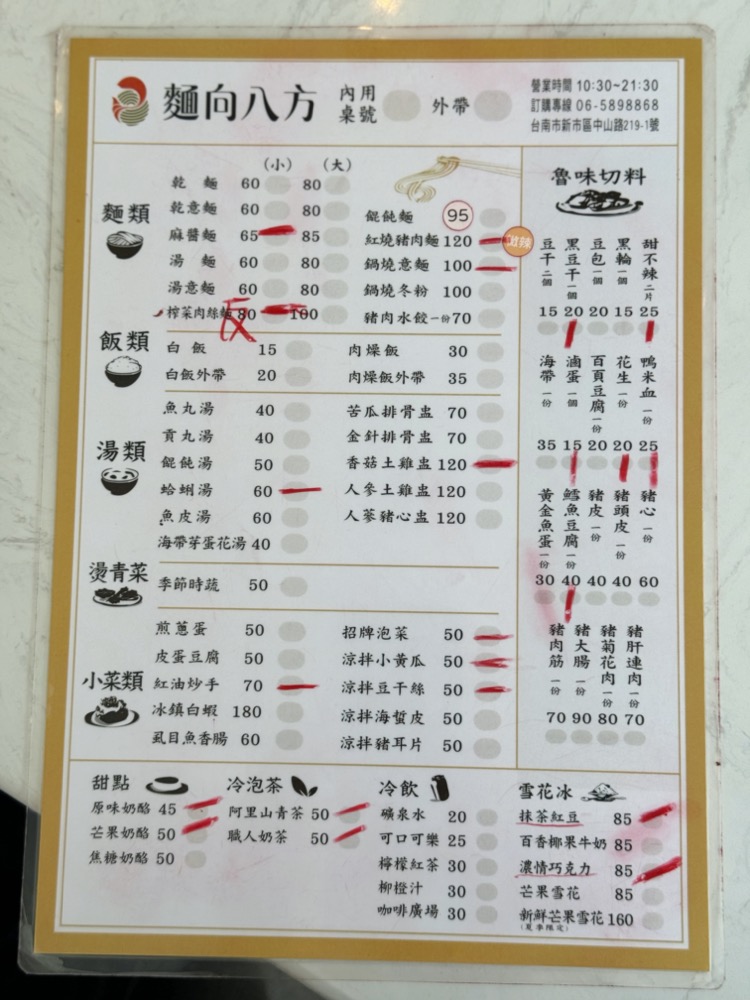 麵向八方
內用
桌號
外帶
營業時間 10:30~21:30
訂購專線 06-5898868
台南市新市區中山路219-1號
麵類
(小) (大)
乾麵 60 80
乾意麵 60 80
麻醬麵 65 85
湯麵 60 80
湯意麵 60 80
榨菜肉絲麵 80 100
餛飩麵 95
紅燒豬肉麵 120 微辣
鍋燒意麵 100
鍋燒冬粉 100
豬肉水餃一份70
飯類
白飯 15
白飯外帶 20
肉燥飯 30
肉燥飯外帶 35
湯類
魚丸湯 40
貢丸湯 40
餛飩湯 50
蛤蜊湯 60
魚皮湯 60
海帶芽蛋花湯 40
苦瓜排骨盅 70
金針排骨盅 70
香菇土雞盅 120
人參土雞盅 120
人蔘豬心盅 120
燙青菜
季節時蔬 50
小菜類
煎蔥蛋 50
皮蛋豆腐 50
紅油炒手 70
冰鎮白蝦 180
虱目魚香腸 60
招牌泡菜 50
涼拌小黃瓜 50
涼拌豆干絲 50
涼拌海蜇皮 50
涼拌豬耳片 50
魯味切料
豆干二個 15
黑豆干一個 20
豆包一個 20
黑輪一個 15
甜不辣二片 25
海帶一份 35
滷蛋一個 15
百頁豆腐一份 20
花生一份 20
鴨米血一份 25
黃金魚蛋一份 30
鱈魚豆腐一份 40
豬皮一份 40
豬頭皮一份 40
豬心一份 60
豬肉筋一份 70
豬大腸一份 90
豬菊花肉一份 80
豬肝連肉一份 70
甜點
原味奶酪 45
芒果奶酪 50
焦糖奶酪 50
冷泡茶
阿里山青茶 50
職人奶茶 50
冷飲
礦泉水 20
可口可樂 25
檸檬紅茶 30
柳橙汁 30
咖啡廣場 30
雪花冰
抹茶紅豆 85
百香椰果牛奶 85
濃情巧克力 85
芒果雪花 85
新鮮芒果雪花 160
(夏季限定)